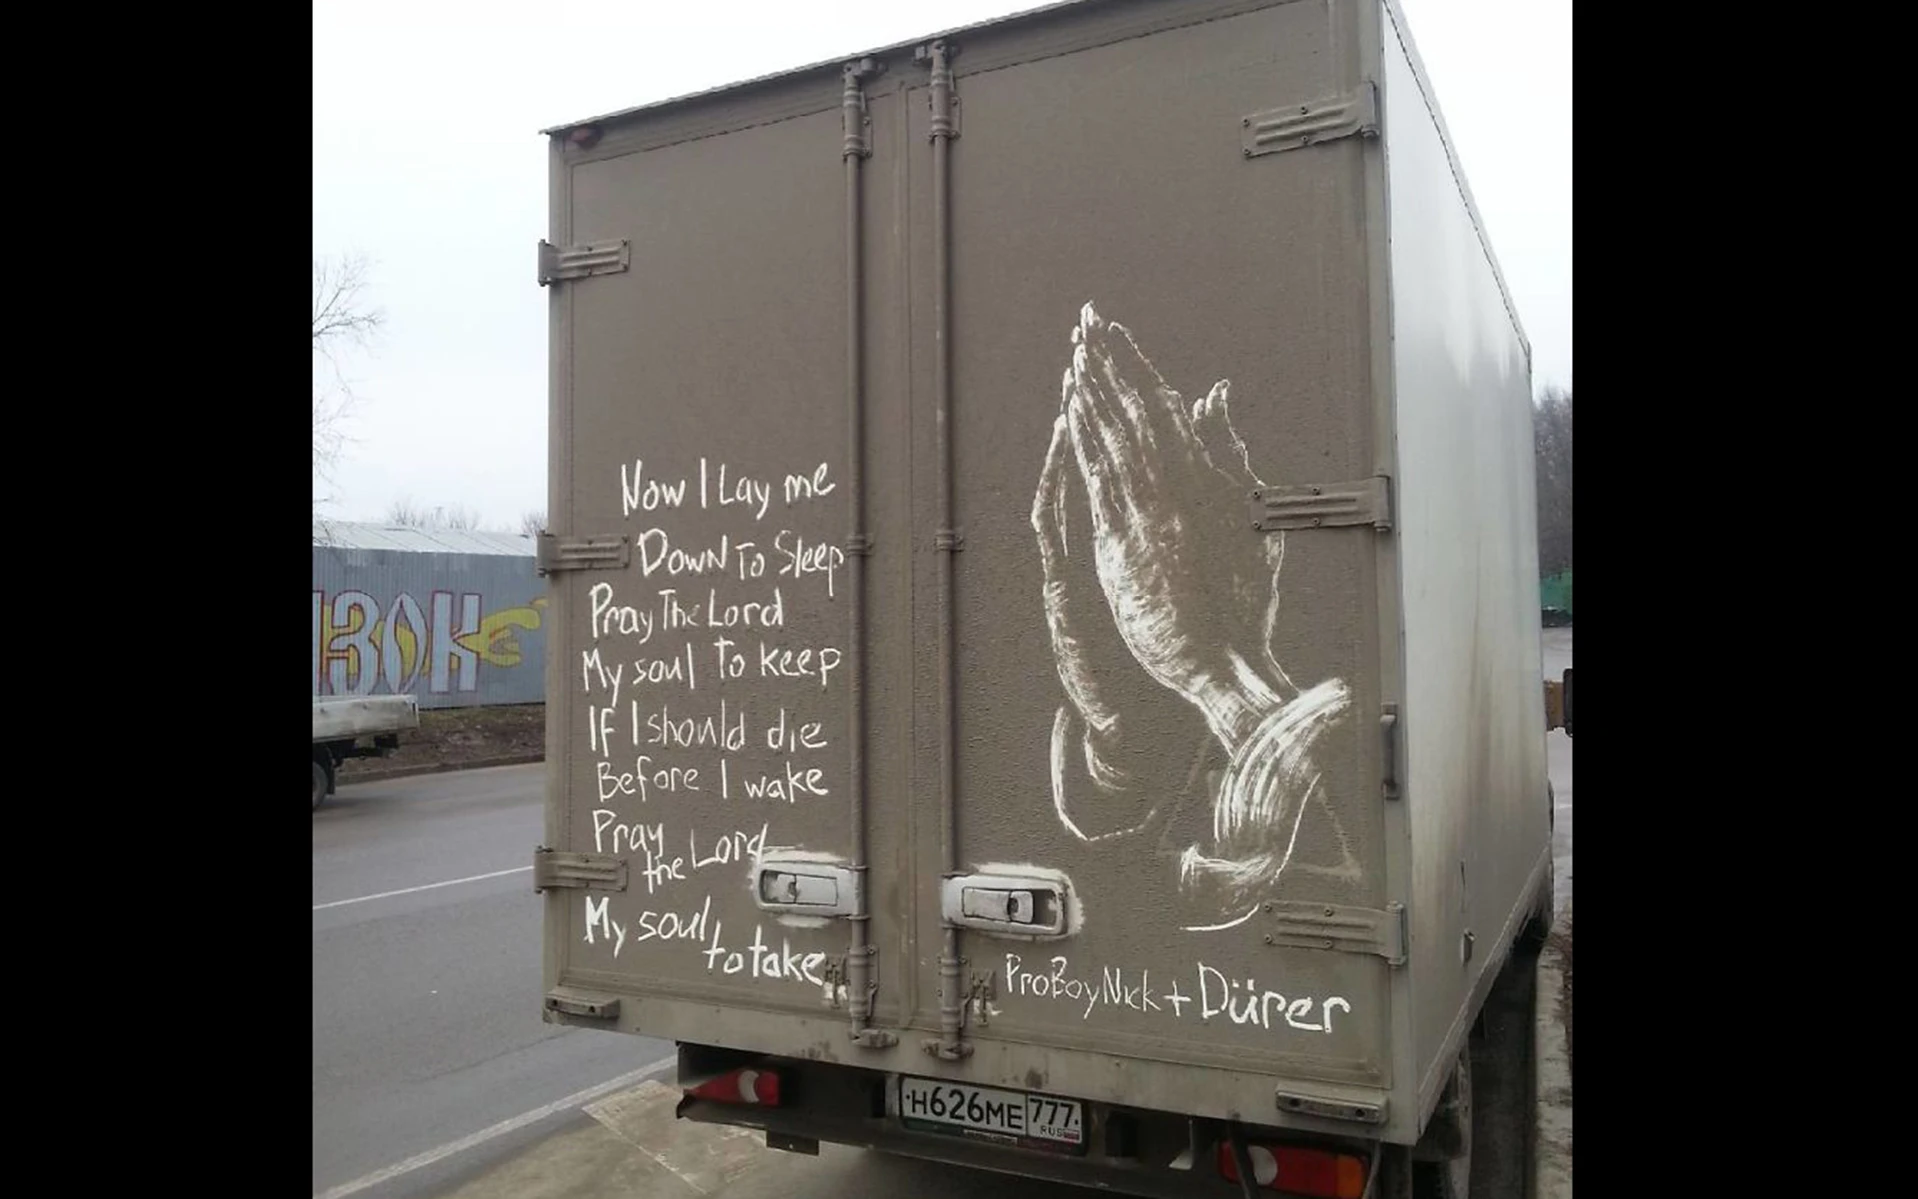 Now I Lay me
Down To Sleep
Pray The Lord
My soul To keep
If I should die
Before I wake
Pray
the Lord
My soul
to take
ProBoyNick + Dürer
H626ME 777
RUS